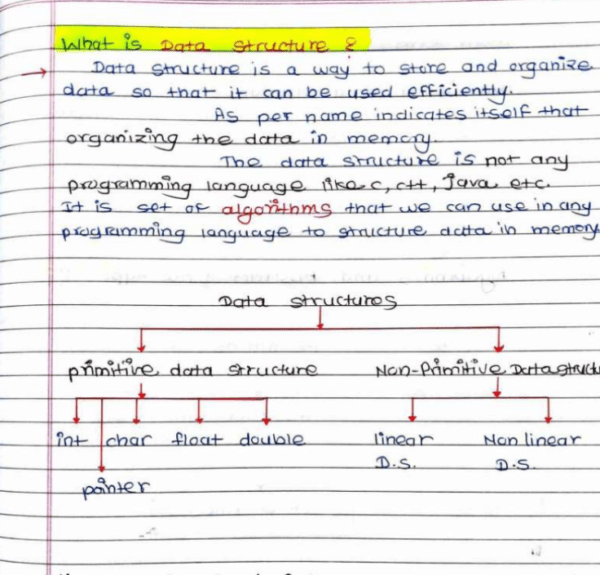 What is Data Structure ?
→ Data structure is a way to store and organize
data so that it can be used efficiently.
As per name indicates itself that
organizing the data in memory.
The data structure is not any
programming language like c, c++, Java etc.
It is set of algorithms that we can use in any
programming language to structure data in memory
Data structures
primitive data structure Non-Primitive Datastruct
int char float double linear Non linear
D.S. D.S.
pointer